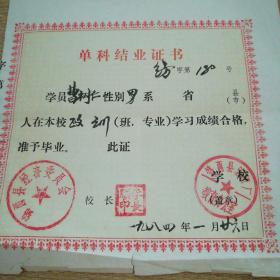 单科结业证书
字第130号
学员 性别男系 省 县(市)
人在本校政训(班、专业)学习成绩合格,
准予毕业。 此证
学校
校长 (盖章)
一九八四年一月廿六日
经济委员会